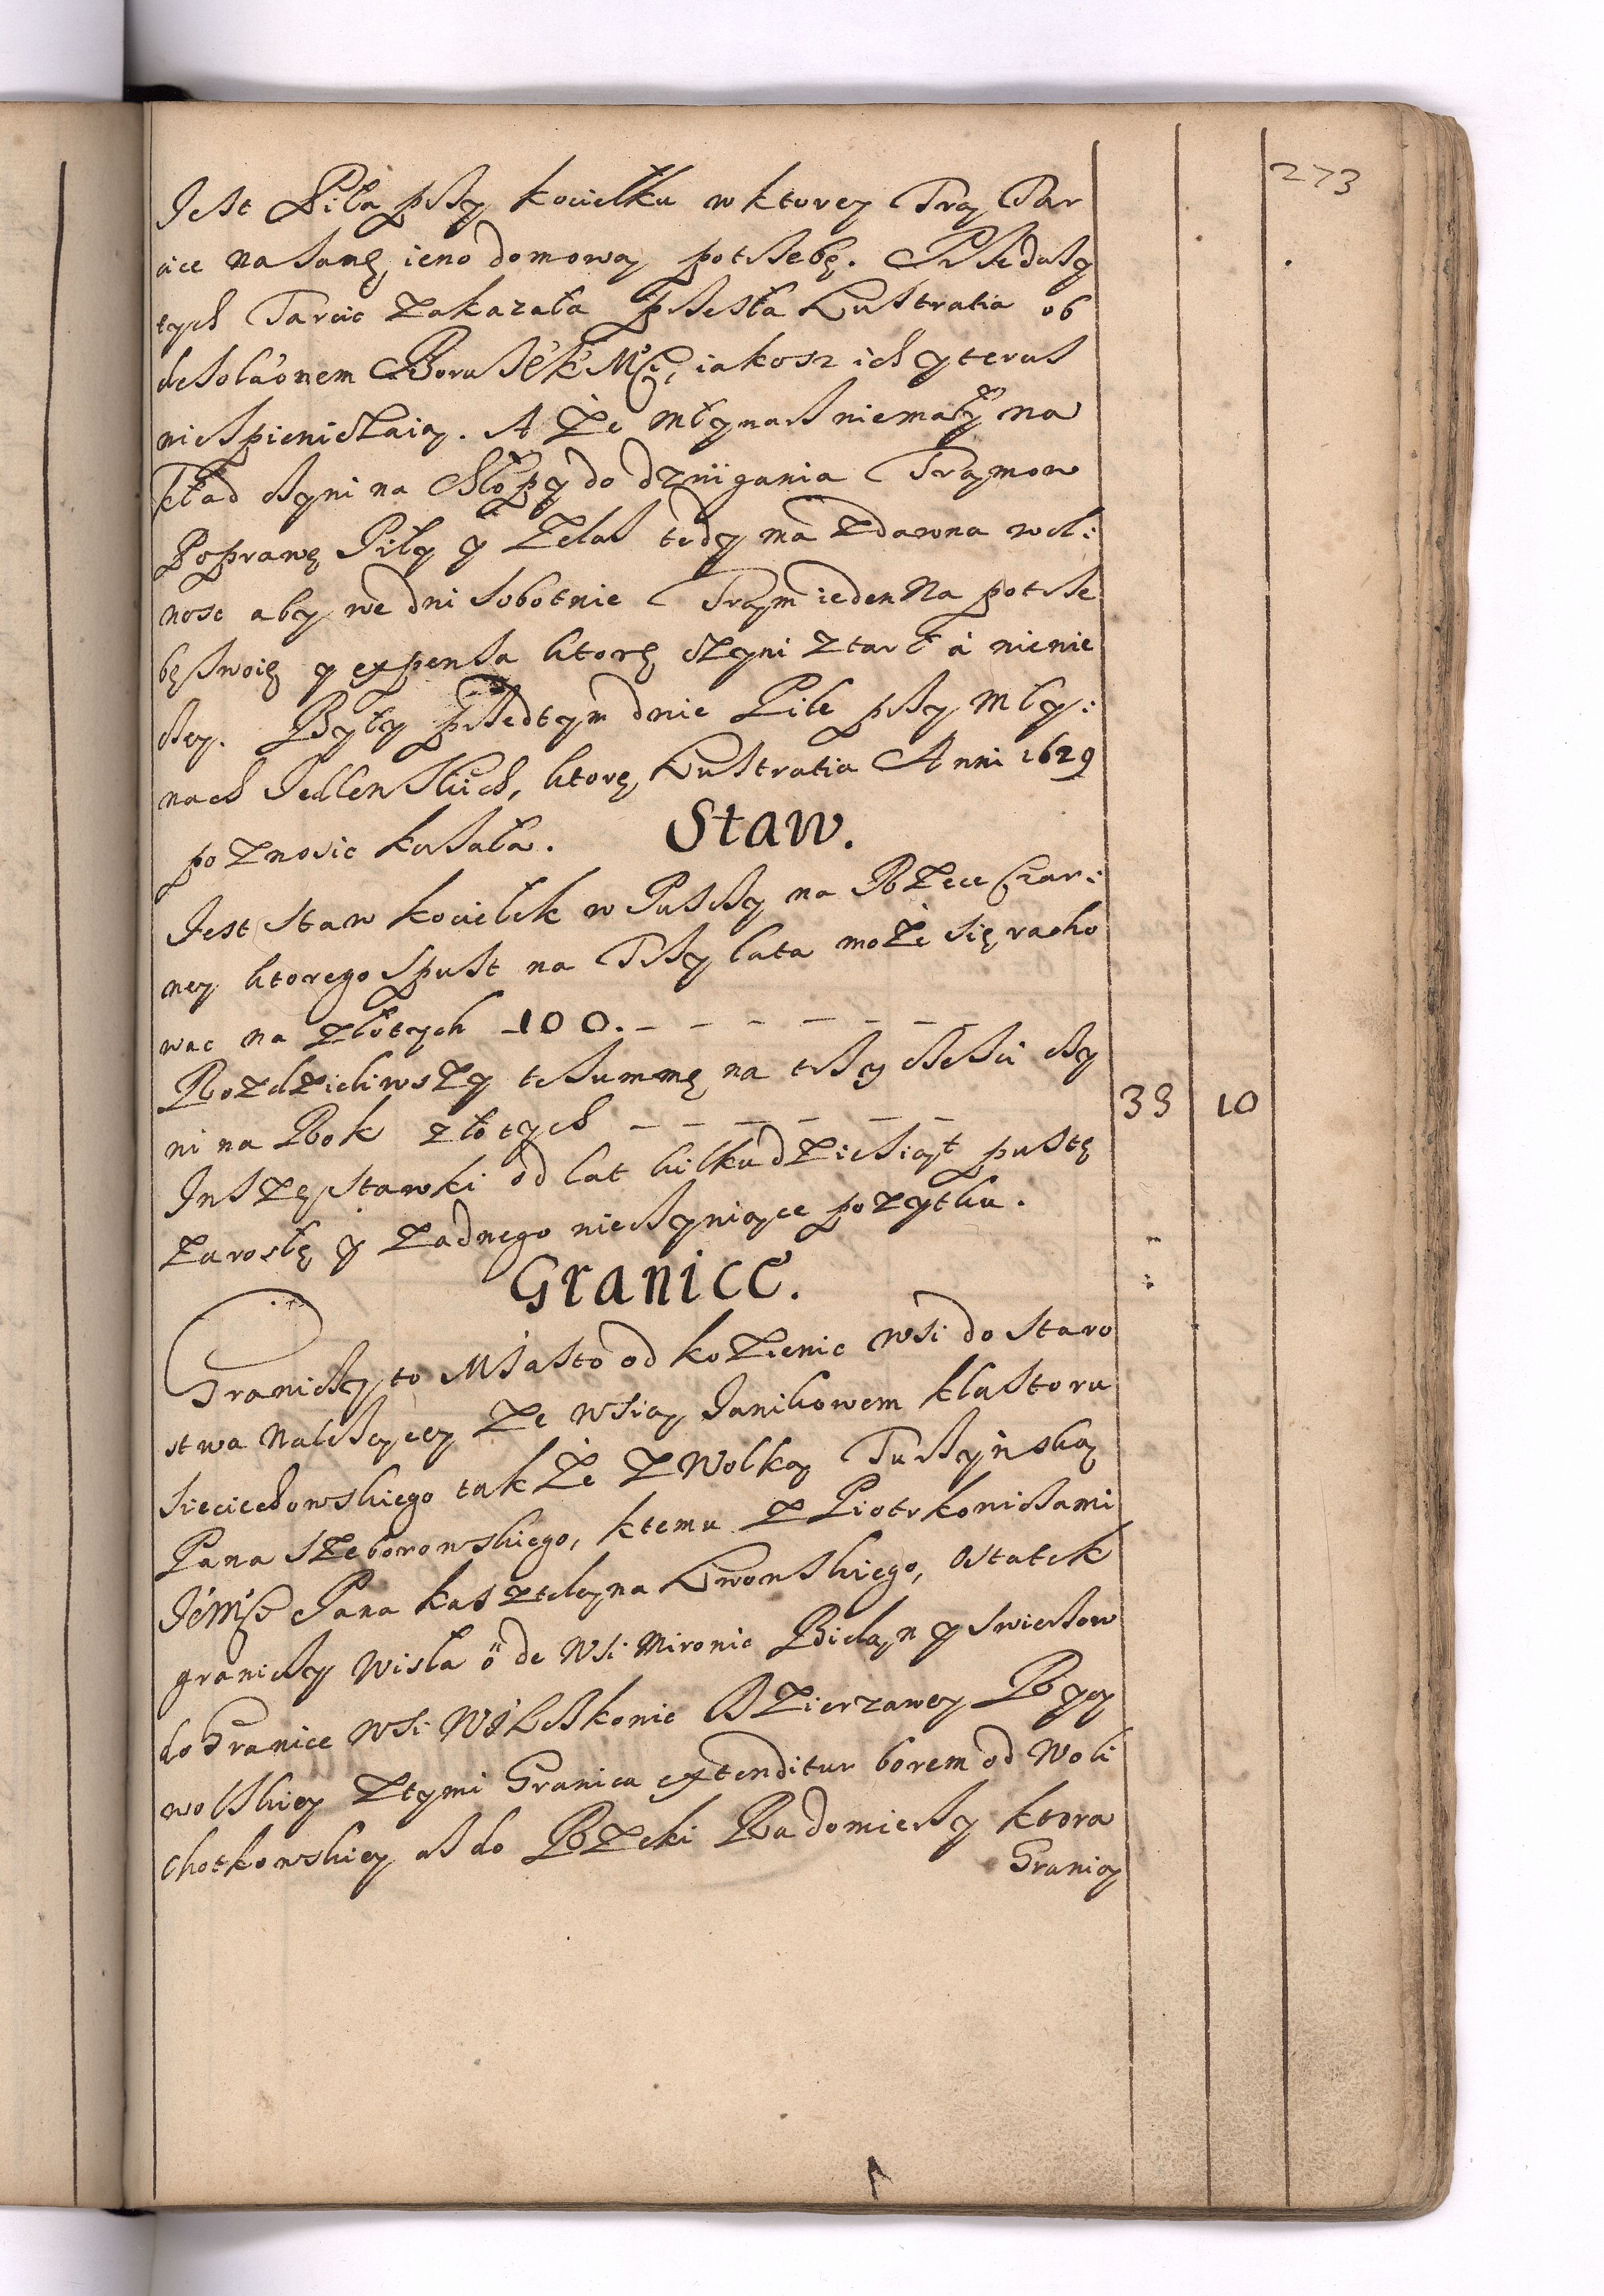 273
Jest Piła przy kociełku w ktorey Trą Tar
cice na samę ieno domową potrzebę. Przedaży
tych Tarcic zakazała przeszła Lustratia ob
desolãonem Boru JeºKºMści, iakosz ich y teraz
niespieniężaią. A że młynarz niemały na
kład czyni na Chłopy do dzwigania Tramow
Poprawę Piły y żelaz tedy ma zdawna wol:
nosc aby we dni sobotnie Tram ieden Na potrze
bę swoię y expensa ktorę czyni ztarł a nie nie
czey. Były przedtym dwie Pile przy Mły:
nach Jedlenskich, ktorę Lustratia Anni 1629
poznosic kazała. Staw.
Jest Staw kociełek w Puszczy na Rzece Czar:
ney ktorego Spust na Trzy lata może się racho
wac na złotych 100. – – – – – – –
Rozdzieliwszy tę summę na trzy części czy
ni na Rok złotych – – – – – – 33 10
Inszę stawki od lat kilkudziesiąt pustę
zarosłę y żadnego nieczyniące pożytku.
Granice.
Graniczy to Miasto od kozienic wsi do staro
stwa Należącey ze wsią Janikowem klasztoru
Sieciechowskiego także z Wolką Turzyńską
Pana Szeborowskiego, ktemu z Piotrkowicami
Jeºmści Pana kasztelana Lwowskiego, Ostatek
graniczy Wisła ode Wsi Mironic Bielan y Swierżow
do Granice wsi Wolczkonic Dzierzawey Ryczy
wolskiey ztymi Granica extenditur borem od Woli
Chotkowskiey aż do Rzeki Radomierzy ktora
Granicą